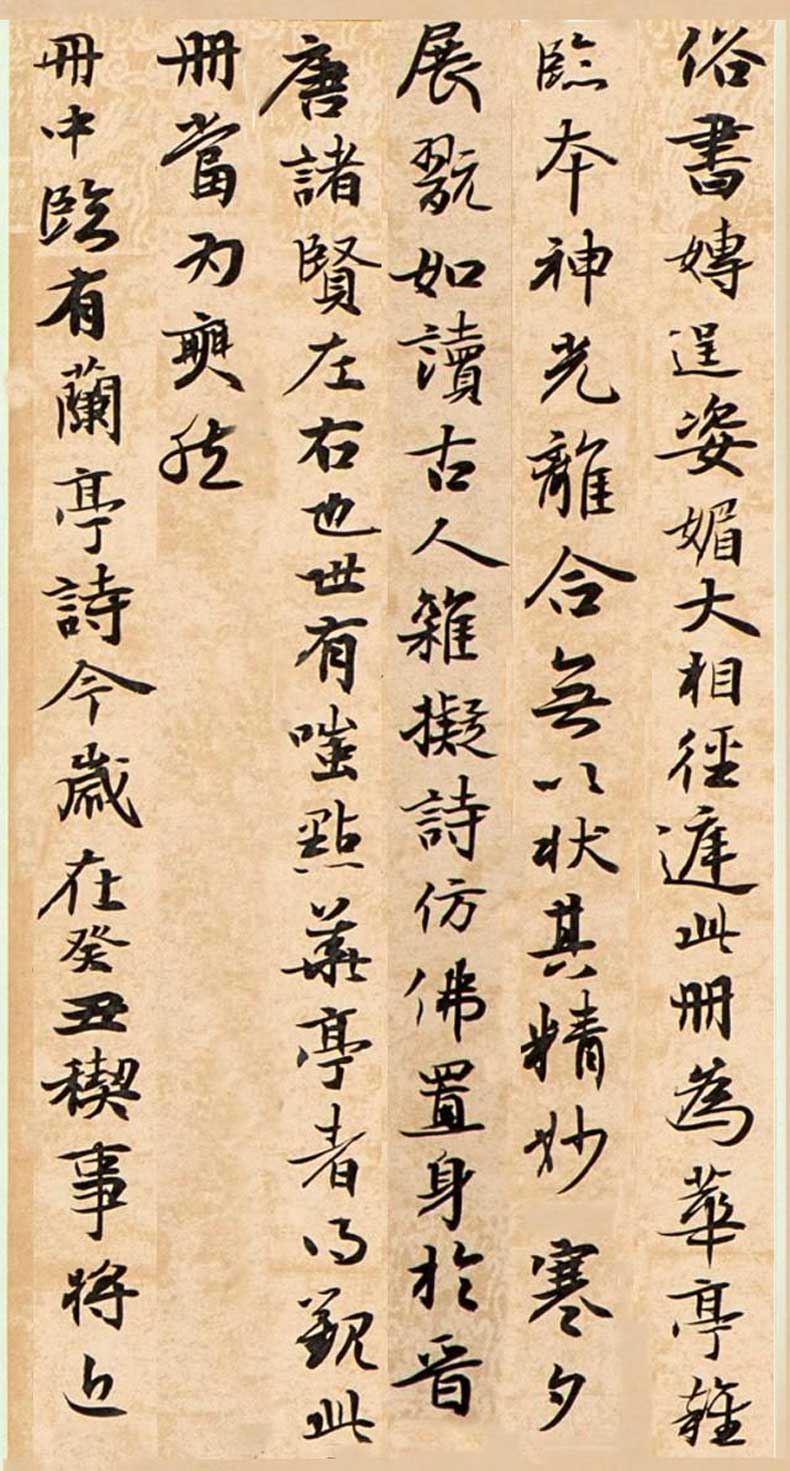 俗書嫥逞姿媚大相徑遽此册為華亭雜
臨本神光離合無以状其精妙寒夕
展翫如讀古人雜擬詩仿佛置身於晉
唐諸賢左右也世有嗤點華亭者得觀此
册當為爽然
冊中臨有蘭亭詩今歲在癸丑稧事將近